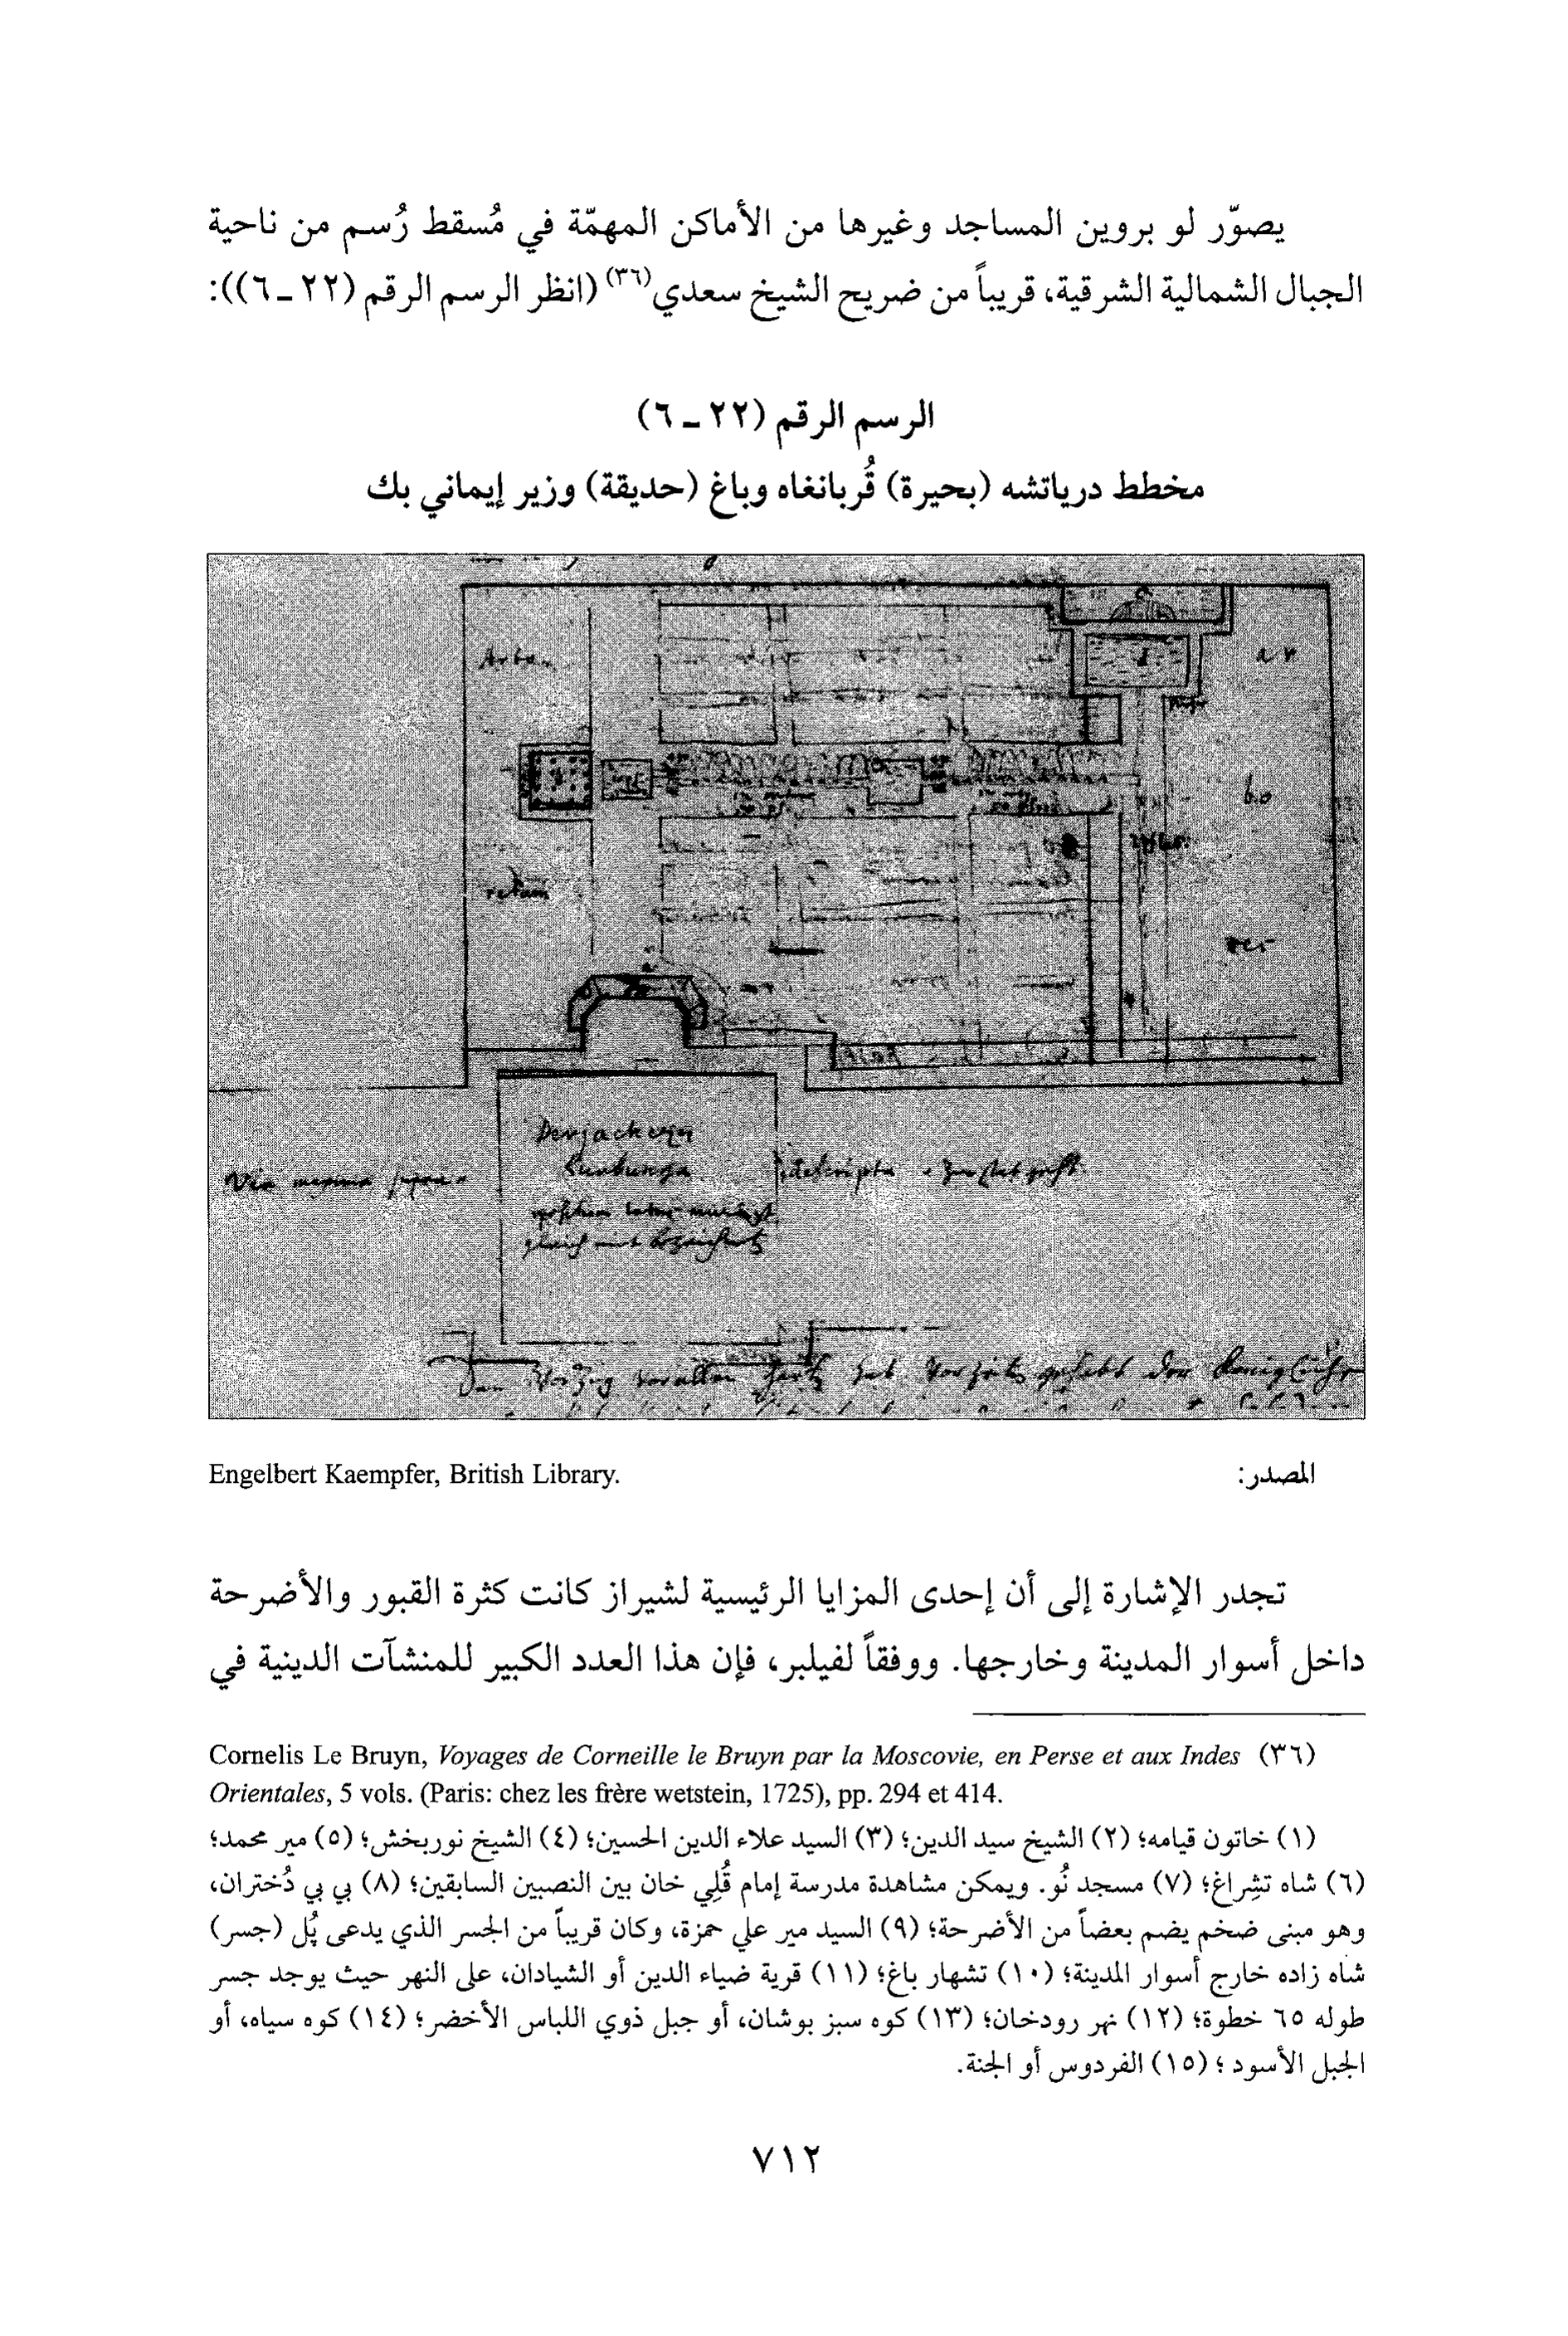 يصوّر لو بروين المساجد وغيرها من الأماكن المهمّة في مُسقط رُسم من ناحية
الجبال الشمالية الشرقية، قريباً من ضريح الشيخ سعدي(٣٦) (انظر الرسم الرقم (٢٢ ـ ٦)):
الرسم الرقم (٢٢ ـ ٦)
مخطط درياتشه (بحيرة) قُربانغاه وباغ (حديقة) وزير إيماني بك
Arbo
ar
bo
retum
res
Derjache
Kurbunga
descripta
Via maxima
Engelbert Kaempfer, British Library. المصدر:
تجدر الإشارة إلى أن إحدى المزايا الرئيسية لشيراز كانت كثرة القبور والأضرحة
داخل أسوار المدينة وخارجها. ووفقاً لفيلبر، فإن هذا العدد الكبير للمنشآت الدينية في
(٣٦) Cornelis Le Bruyn, Voyages de Corneille le Bruyn par la Moscovie, en Perse et aux Indes
Orientales, 5 vols. (Paris: chez les frère wetstein, 1725), pp. 294 et 414.
(١) خاتون قيامه؛ (٢) الشيخ سيد الدين؛ (٣) السيد علاء الدين الحسين؛ (٤) الشيخ نوربخش؛ (٥) مير محمد؛
(٦) شاه تشِراغ؛ (٧) مسجد نُو. ويمكن مشاهدة مدرسة إمام قُلِي خان بين النصبين السابقين؛ (٨) بي بي دُختران،
وهو مبنى ضخم يضم بعضاً من الأضرحة؛ (٩) السيد مير علي حمزة، وكان قريباً من الجسر الذي يدعى پُل (جسر)
شاه زاده خارج أسوار المدينة؛ (١٠) تشهار باغ؛ (١١) قرية ضياء الدين أو الشيادان، على النهر حيث يوجد جسر
طوله ٦٥ خطوة؛ (١٢) نهر رودخان؛ (١٣) كوه سبز بوشان، أو جبل ذوي اللباس الأخضر؛ (١٤) كوه سياه، أو
الجبل الأسود ؛ (١٥) الفردوس أو الجنة.
٧١٢